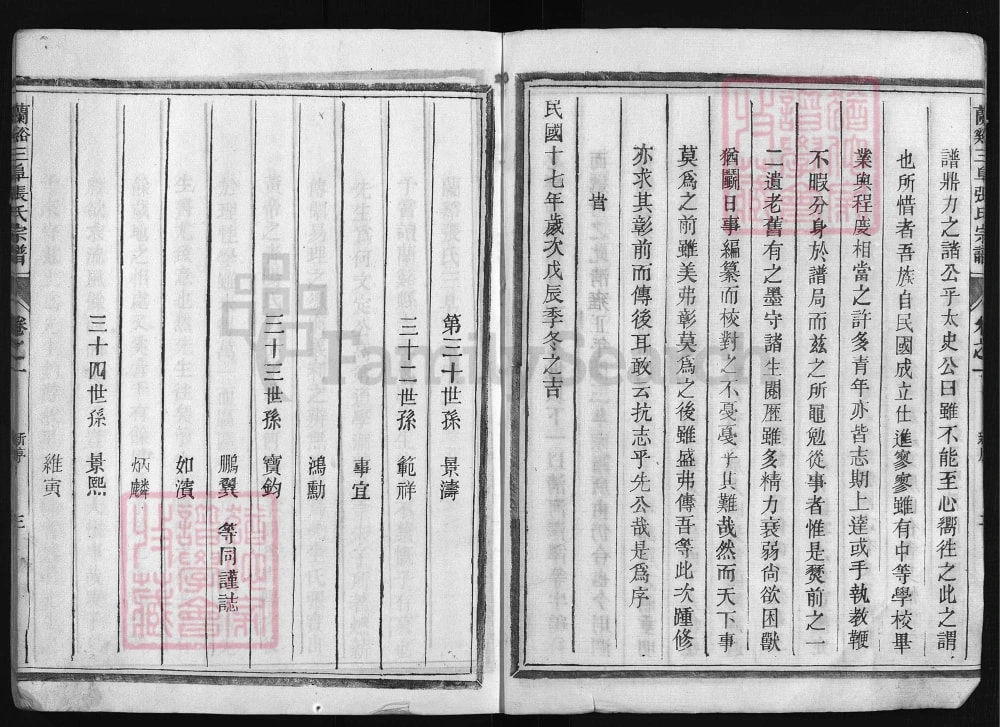 譜鼎力之諸公乎太史公曰雖不能至心嚮徃之此之謂
也所惜者吾族自民國成立仕進寥寥雖有中等學校畢
業與程度相當之許多青年亦皆志期上達或手執教鞭
不暇分身於譜局而兹之所黽勉從事者惟是焚前之一
二遺老舊有之墨守諸生閱歷雖多精力衰弱尙欲困獸
猶鬬日事編纂而校對之不戞戞乎其難哉然而天下事
莫爲之前雖美弗彰莫爲之後雖盛弗傳吾等此次踵修
亦求其彰前而傳後耳敢云抗志乎先公哉是爲序
旹
民國十七年歲次戊辰季冬之吉
第三十世孫 景濤
三十二世孫 範祥
事宜
鴻勳
三十三世孫 寶鈞
鵬翼 等同謹誌
如濱
炳麟
三十四世孫 景熙
維寅
蘭谿三阜張氏宗譜 卷之一 新序 三
FamilySearch